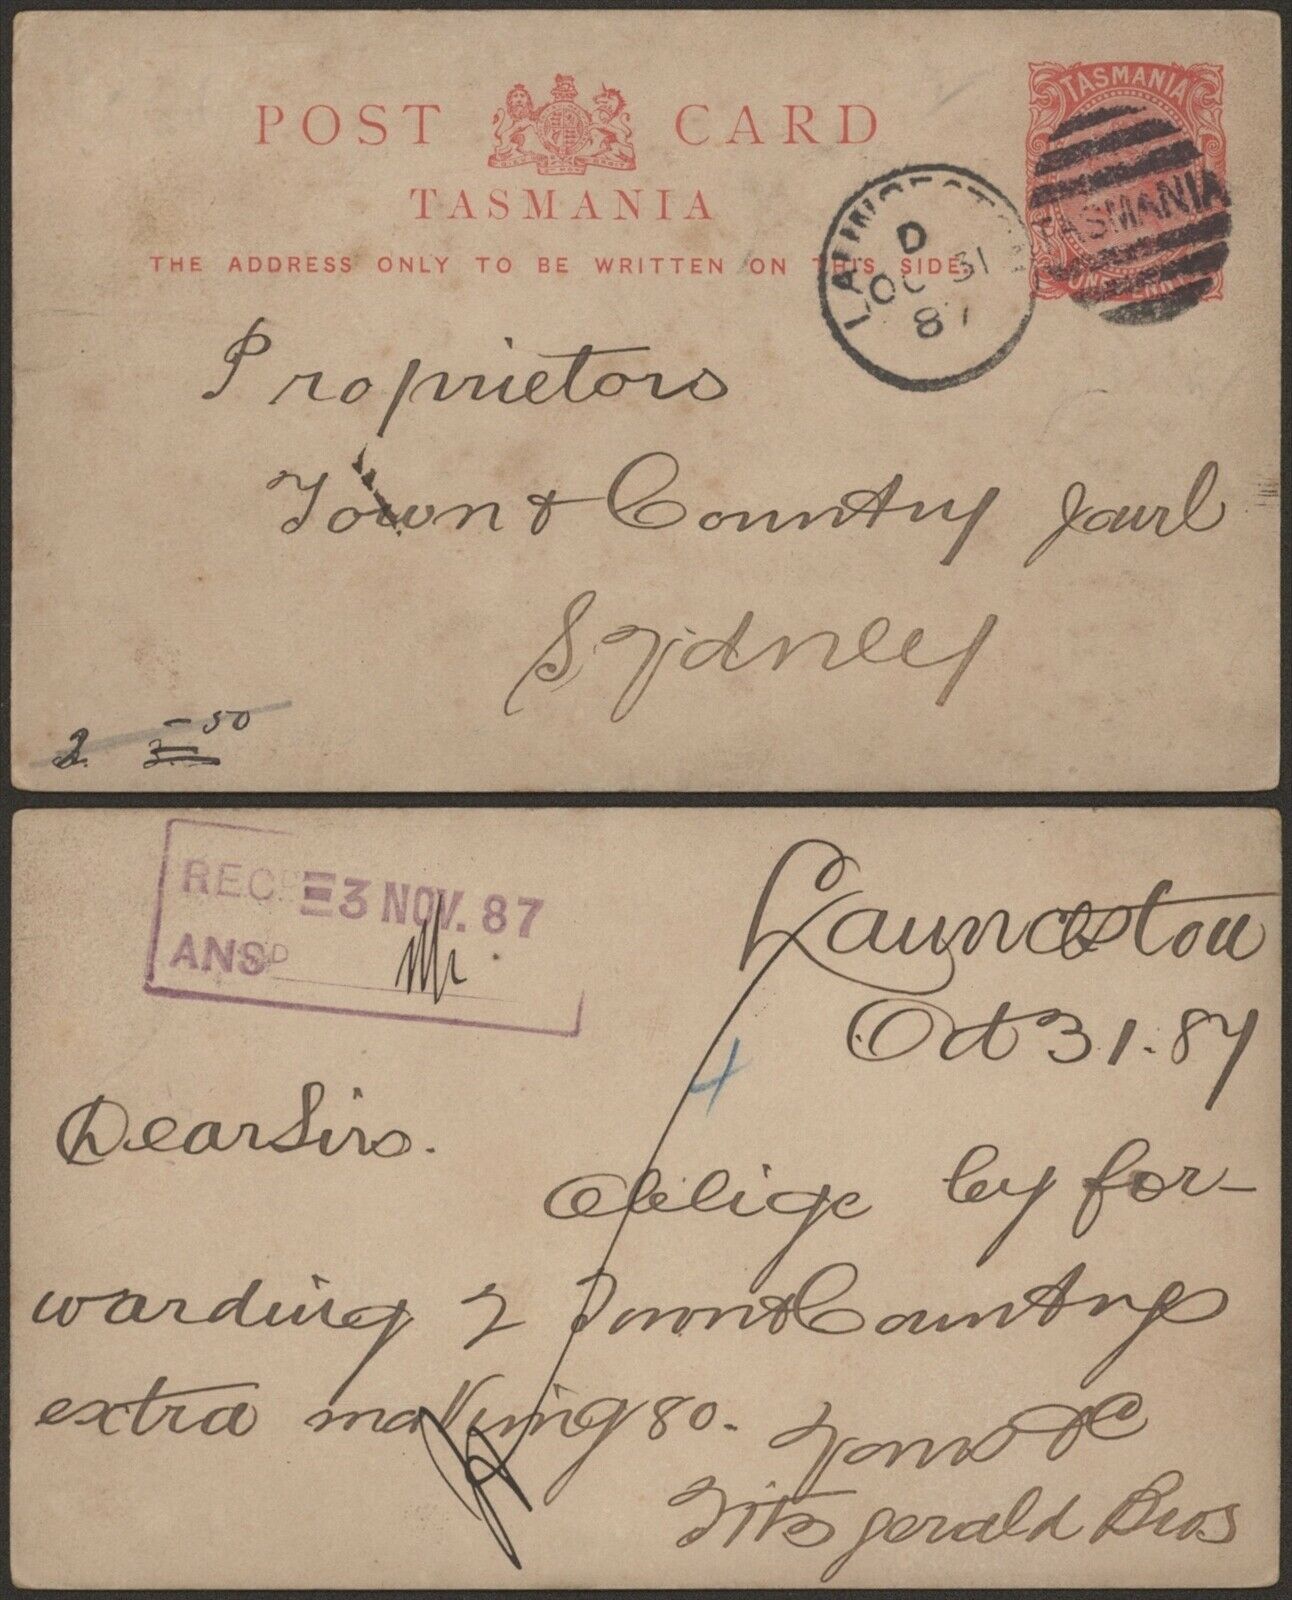 POST CARD
TASMANIA
THE ADDRESS ONLY TO BE WRITTEN ON THIS SIDE.
TASMANIA
TASMANIA
ONE PENNY
LAUNCESTON
D
OC 31
87
Proprietors
Town & Country Jourl
Sydney
2. 3. - 50
RECD 3 NOV. 87
ANSD
Launceston
Oct 31. 87
Dear Sirs.
Oblige by for-
warding 2 Town & Countrys
extra making 80.
Yours &c
Fitzgerald Bros